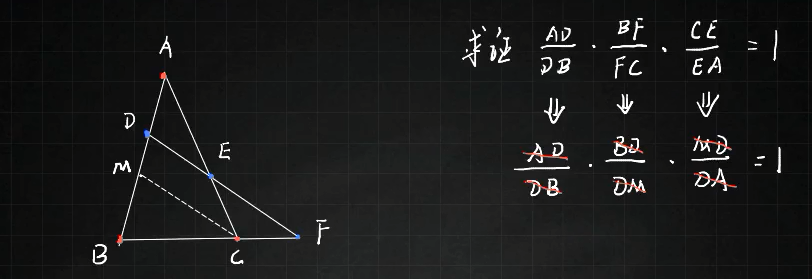 A
D
E
M
B
C
F
求证 AD/DB · BF/FC · CE/EA = 1
⇓ ⇓ ⇓
AD/DB · BD/DM · MD/DA = 1